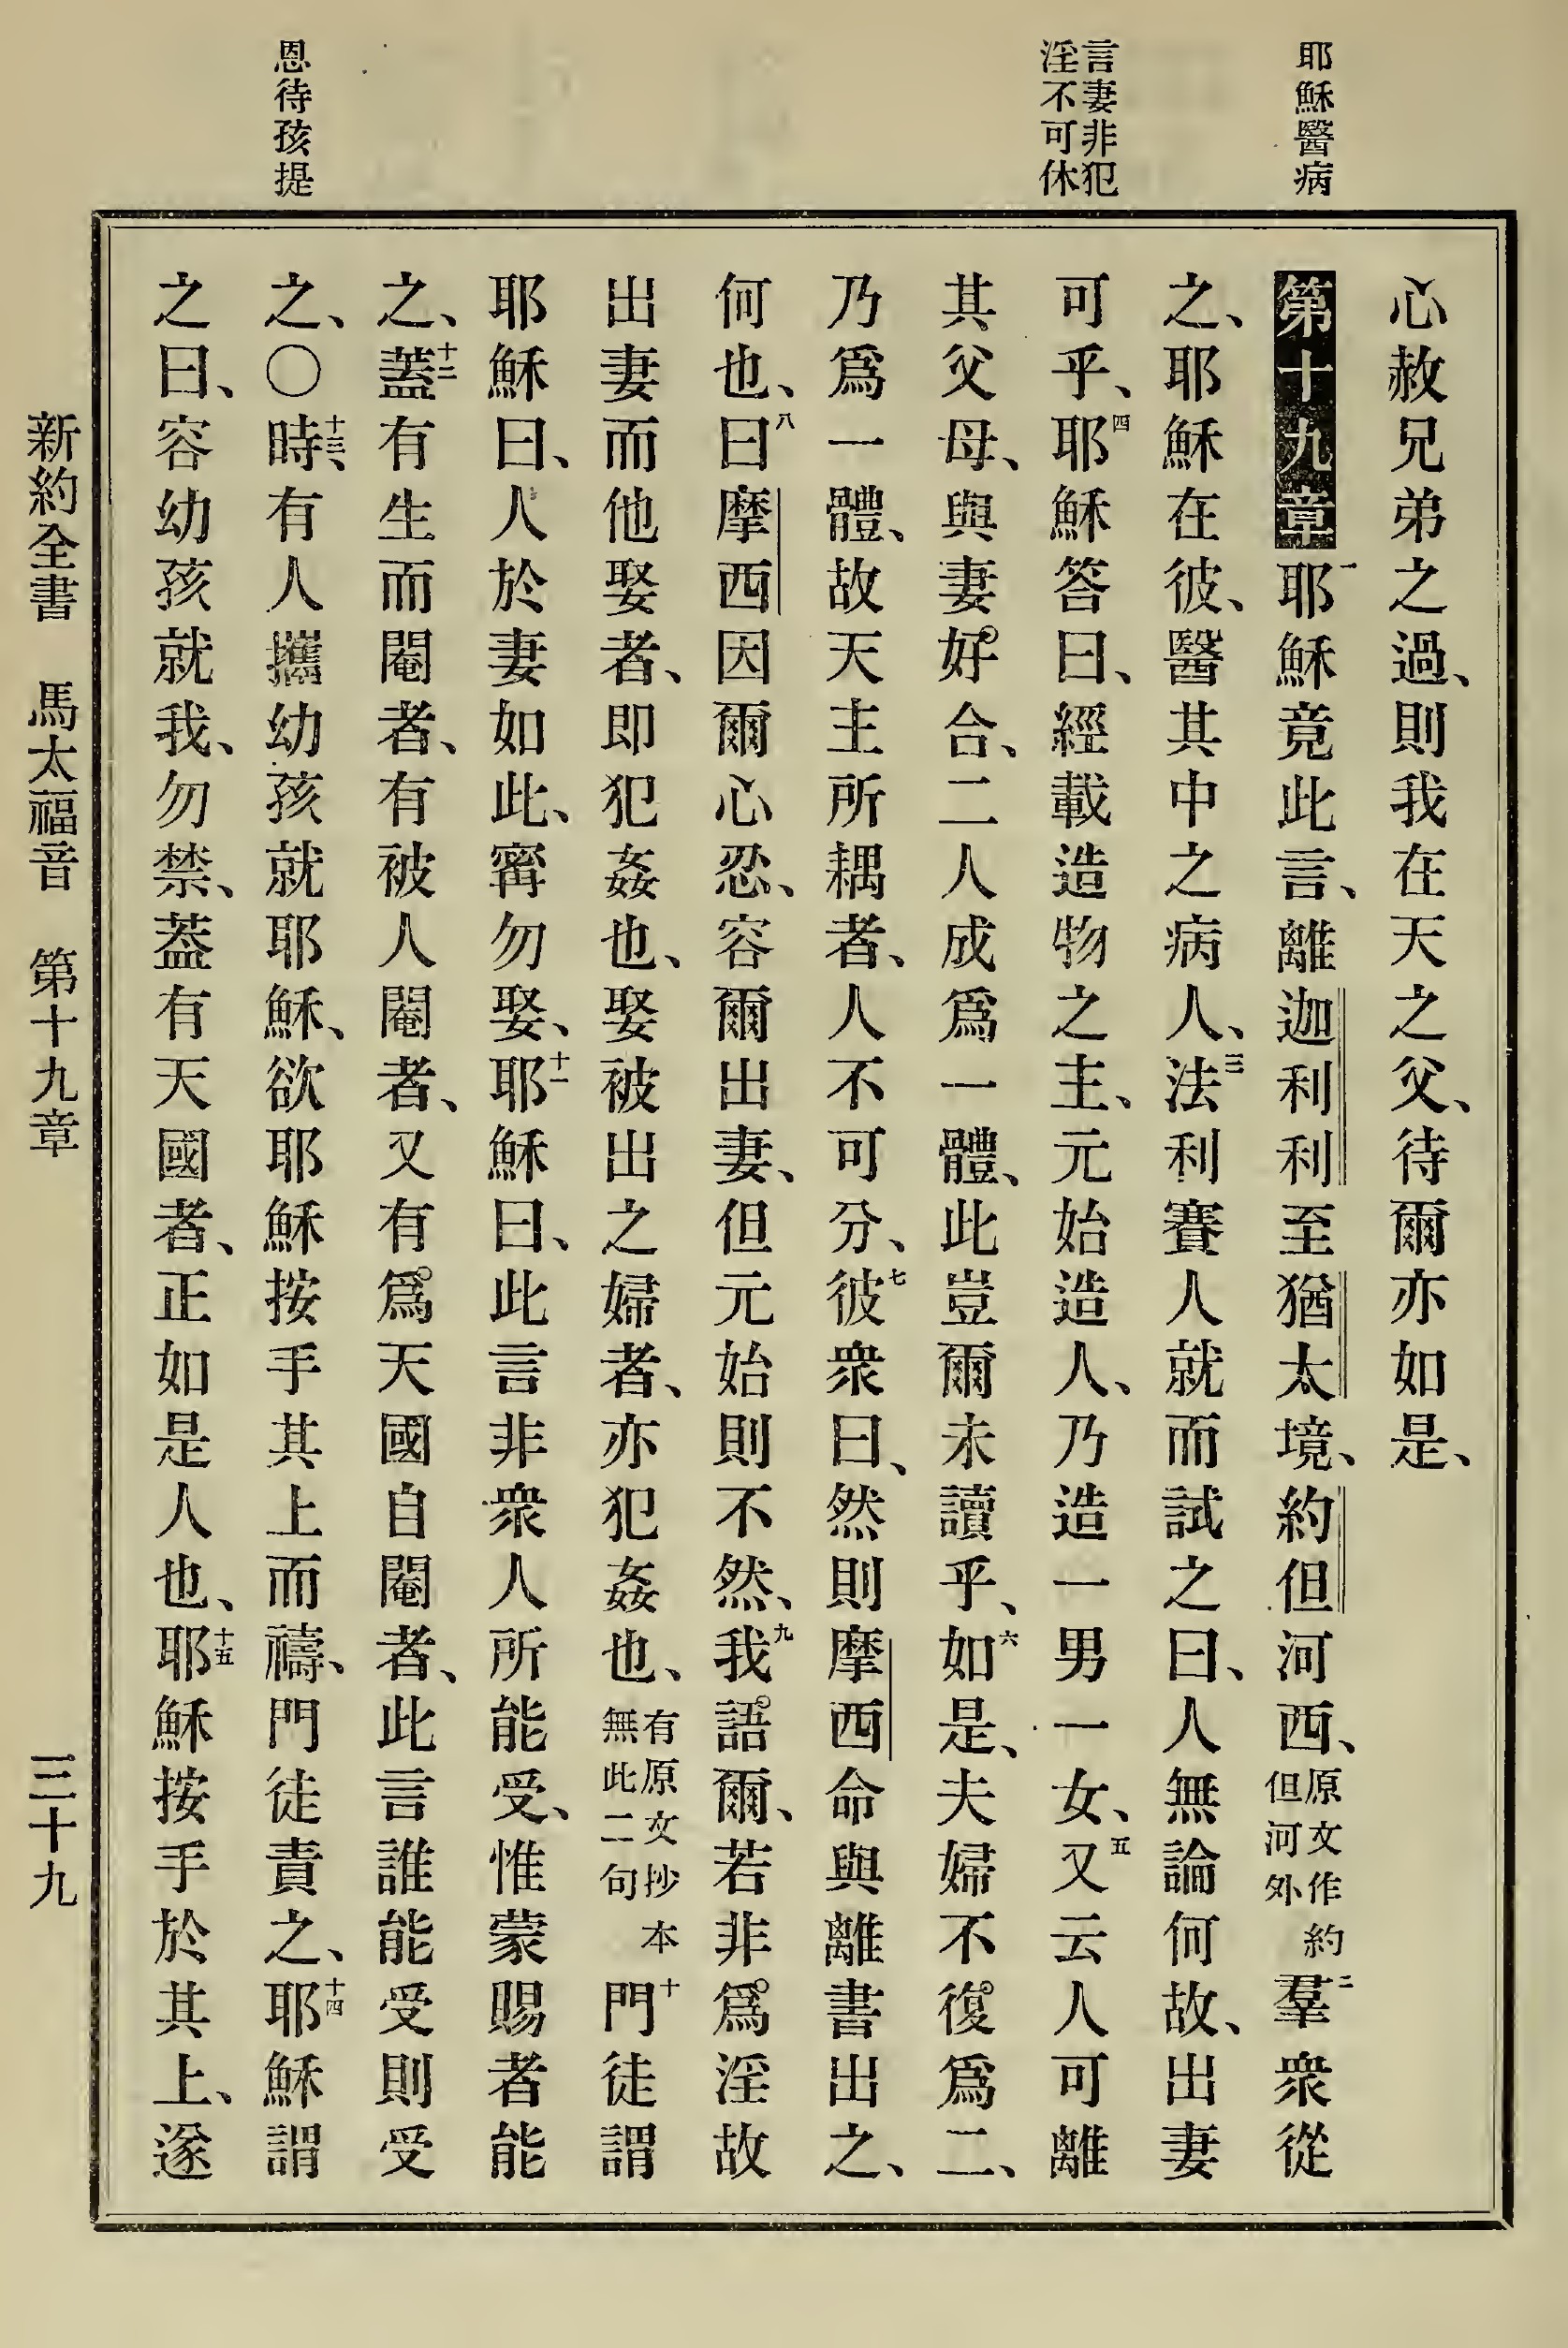 耶穌醫病
言妻非犯
淫不可休
恩待孩提
心赦兄弟之過、則我在天之父、待爾亦如是、
第十九章 一耶穌竟此言、離迦利利至猶太境、約但河西、原文作約但河外二羣衆從
之、耶穌在彼、醫其中之病人、三法利賽人就而試之曰、人無論何故、出妻
可乎、四耶穌答曰、經載造物之主、元始造人、乃造一男一女、五又云人可離
其父母、與妻好合、二人成爲一體、此豈爾未讀乎、六如是、夫婦不復爲二、
乃爲一體、故天主所耦者、人不可分、七彼衆曰、然則摩西命與離書出之、
何也、八曰摩西因爾心忍、容爾出妻、但元始則不然、九我語爾、若非爲淫故
出妻而他娶者、即犯姦也、娶被出之婦者、亦犯姦也、有原文抄本無此二句十門徒謂
耶穌曰、人於妻如此、寗勿娶、十一耶穌曰、此言非衆人所能受、惟蒙賜者能
之、十二蓋有生而閹者、有被人閹者、又有爲天國自閹者、此言誰能受則受
之、〇十三時、有人攜幼孩就耶穌、欲耶穌按手其上而禱、門徒責之、十四耶穌謂
之曰、容幼孩就我、勿禁、蓋有天國者、正如是人也、十五耶穌按手於其上、遂
新約全書 馬太福音 第十九章 三十九